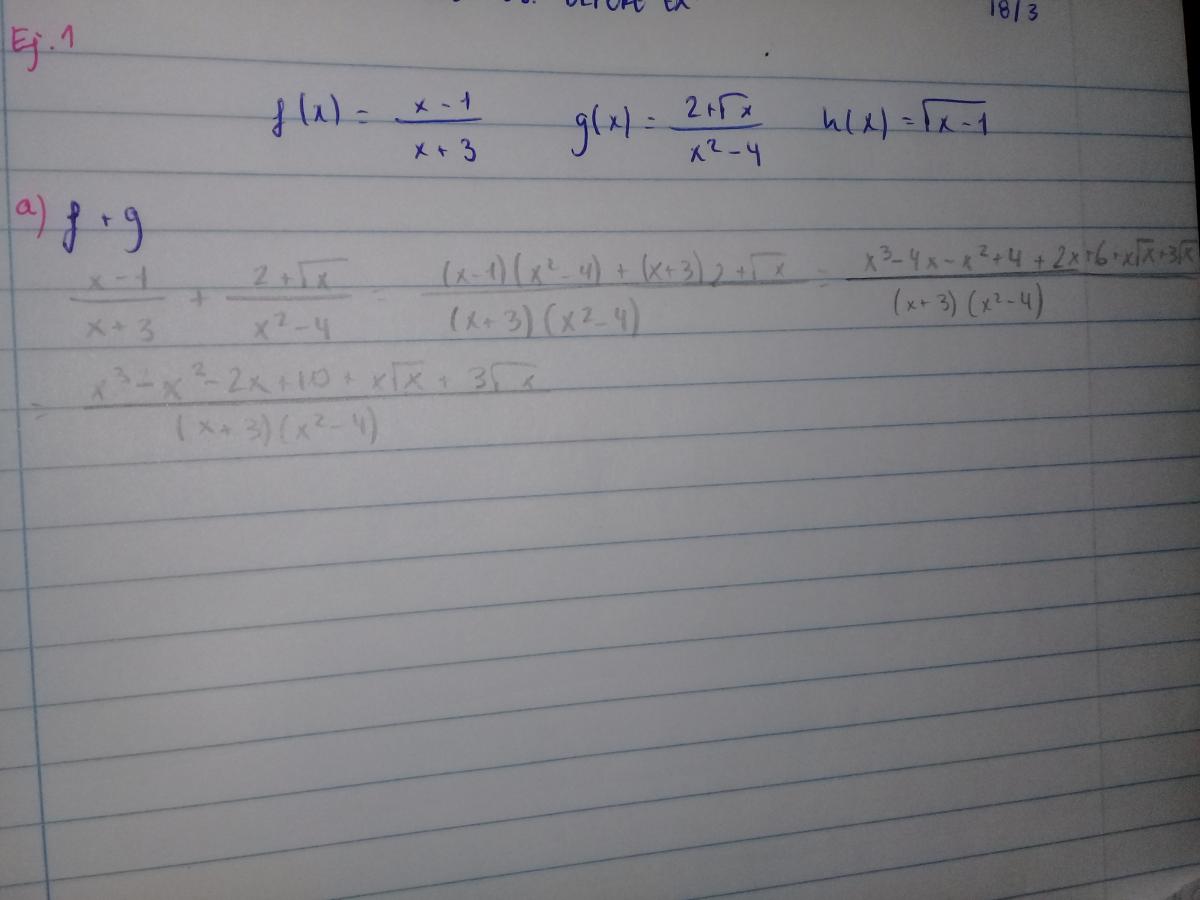 18/3
Ej. 1
f(x) = x-1 / x+3 g(x) = 2+√x / x²-4 h(x) = √x-1
a) f + g
x-1 / x+3 + 2+√x / x²-4 = (x-1)(x²-4) + (x+3) 2+√x / (x+3)(x²-4) = x³-4x-x²+4+2x+6+x√x+3√x / (x+3)(x²-4)
= x³-x²-2x+10+x√x+3√x / (x+3)(x²-4)